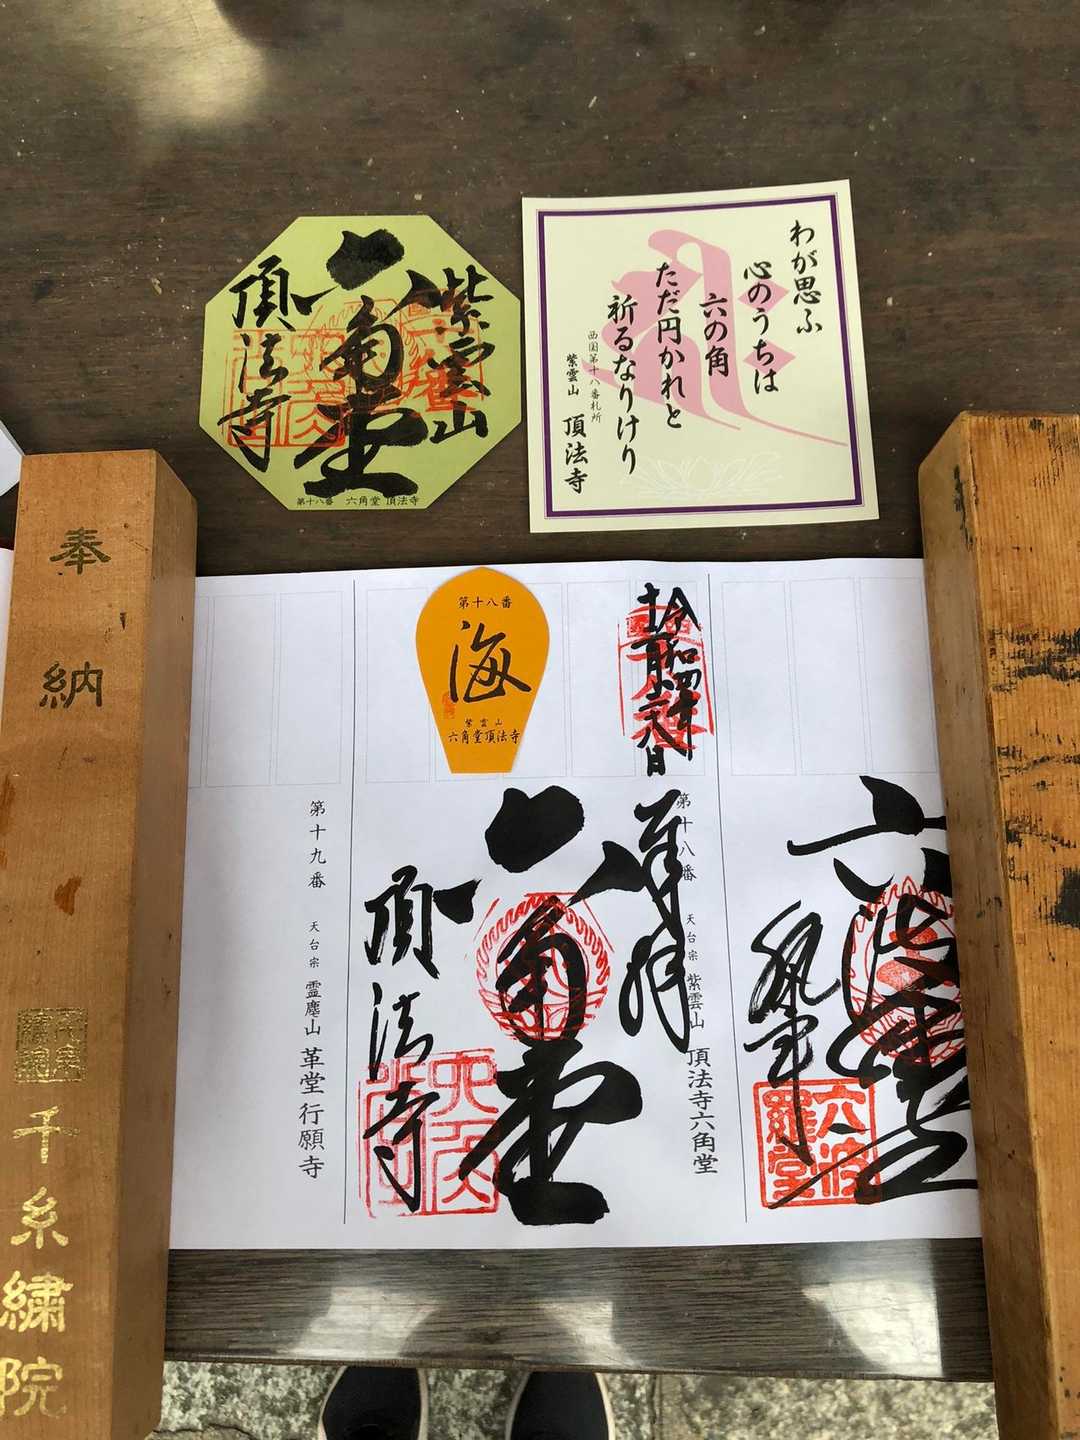 紫雲山
六角堂
頂法寺
第十八番 六角堂 頂法寺
わが思ふ
心のうちは
六の角
ただ円かれと
祈るなりけり
西国第十八番札所
紫雲山 頂法寺
奉納
千糸繍院
第十八番
海
紫雲山
六角堂頂法寺
奉拝
六角堂
頂法寺
第十八番 天台宗 紫雲山 頂法寺六角堂
第十九番 天台宗 霊麀山 革堂 行願寺
六波
羅堂